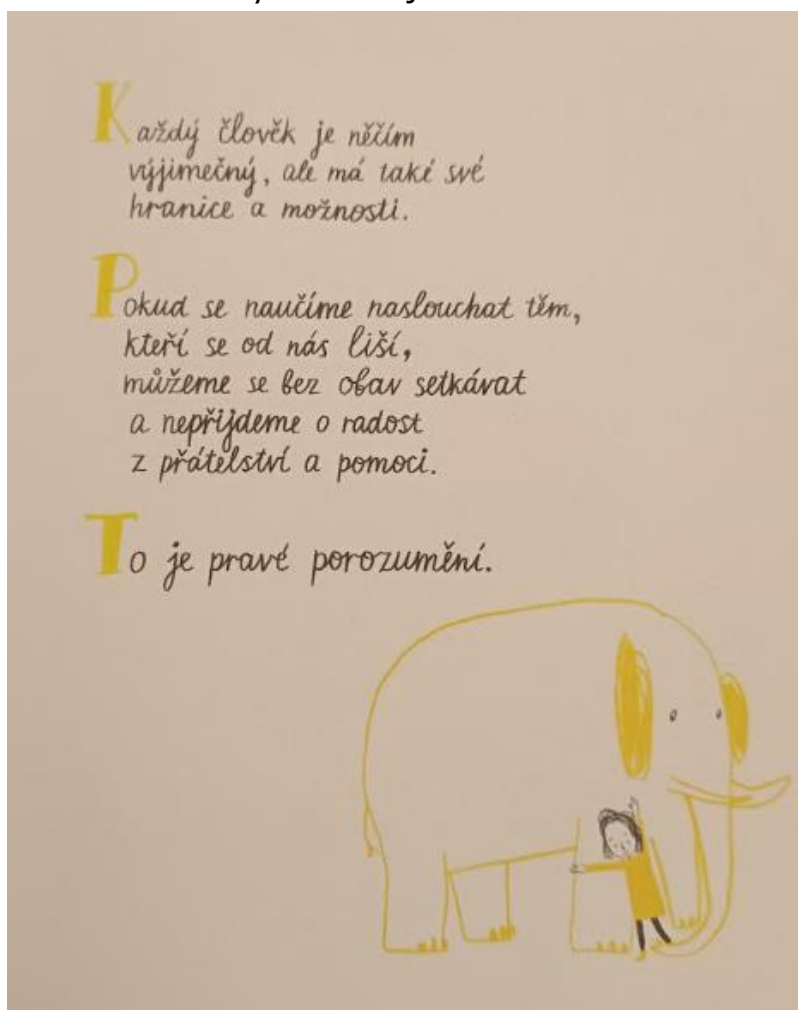 Každý člověk je něčím
výjimečný, ale má také své
hranice a možnosti.
Pokud se naučíme naslouchat těm,
kteří se od nás liší,
můžeme se bez obav setkávat
a nepřijdeme o radost
z přátelství a pomoci.
To je pravé porozumění.